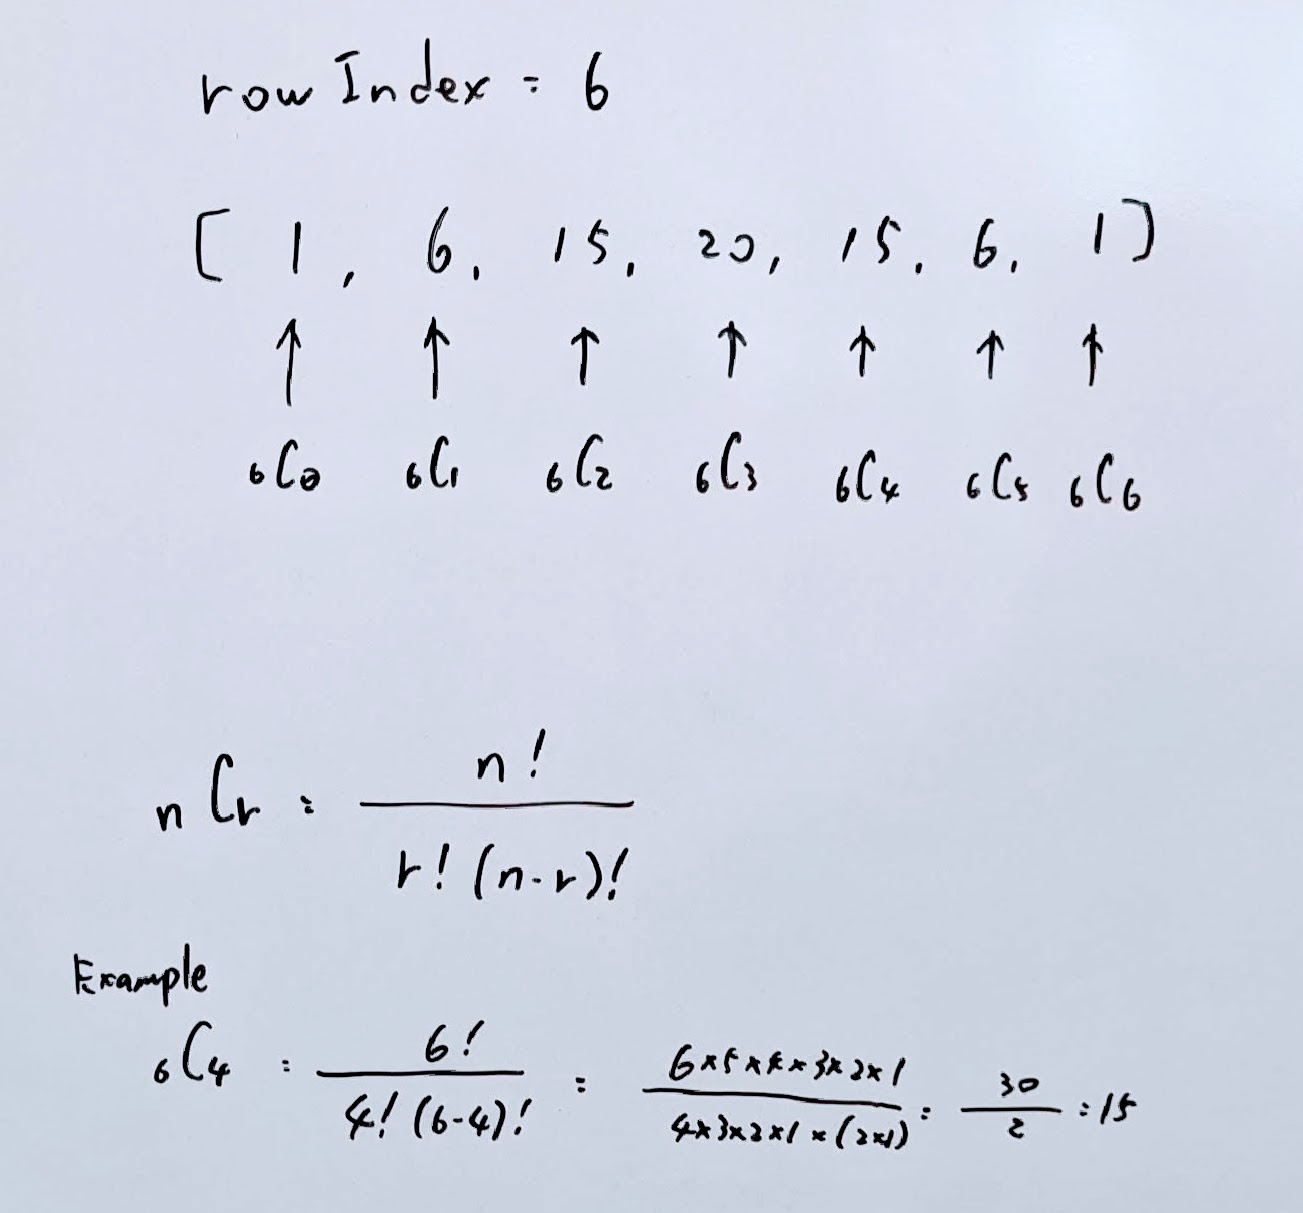 row Index = 6
[ 1, 6, 15, 20, 15, 6, 1]
↑ ↑ ↑ ↑ ↑ ↑ ↑
₆C₀ ₆C₁ ₆C₂ ₆C₃ ₆C₄ ₆C₅ ₆C₆
nCr = n! / r! (n-r)!
Example
₆C₄ = 6! / 4! (6-4)! = 6×5×4×3×2×1 / 4×3×2×1×(2×1) = 30 / 2 = 15